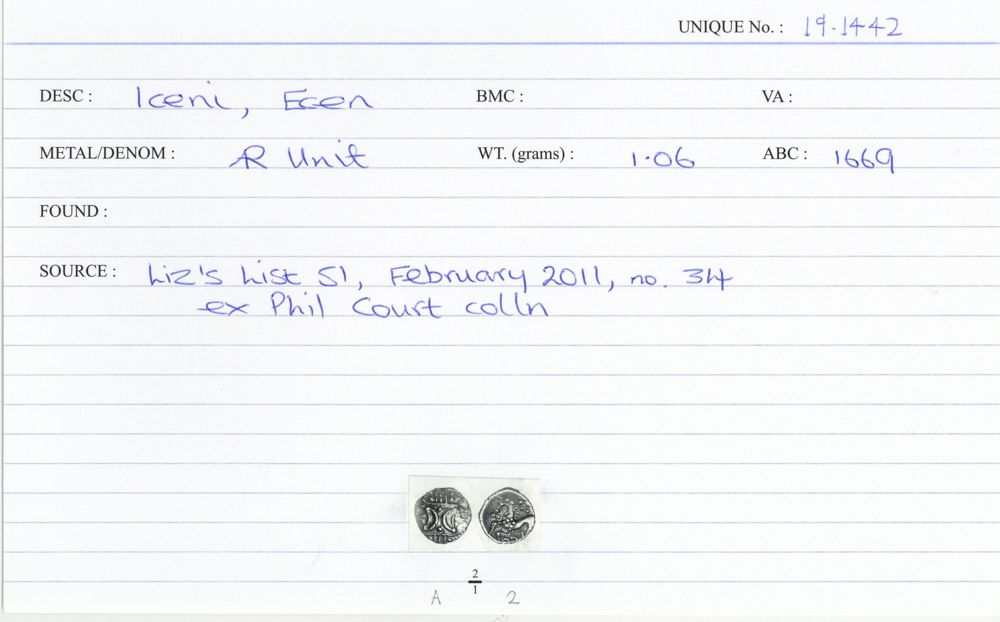 UNIQUE No. : 19.1442
DESC : Iceni, Ecen BMC : VA :
METAL/DENOM : AR Unit WT. (grams) : 1.06 ABC : 1669
FOUND :
SOURCE : Liz's List 51, February 2011, no. 34
ex Phil Court colln
2
A 1 2